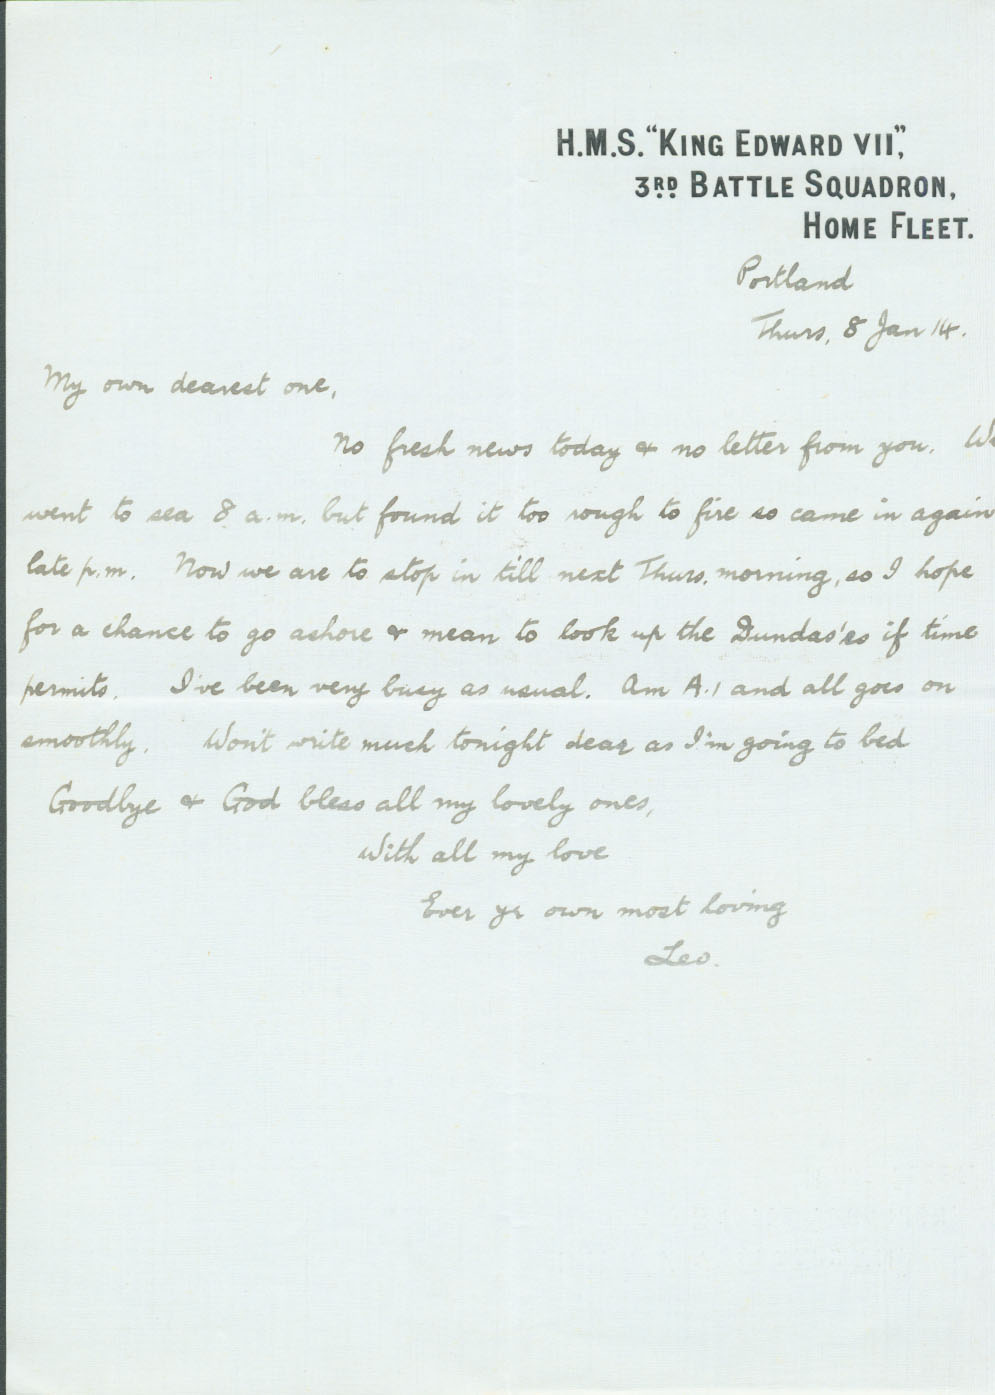 H.M.S. "KING EDWARD VII",
3RD BATTLE SQUADRON,
HOME FLEET.
Portland
Thurs, 8 Jan 14.
My own dearest one,
No fresh news today & no letter from you. We
went to sea 8 a.m. but found it too rough to fire so came in again
late p.m. Now we are to stop in till next Thurs. morning, so I hope
for a chance to go ashore & mean to look up the Dundas'es if time
permits. I've been very busy as usual. Am A.1 and all goes on
smoothly. Won't write much tonight dear as I'm going to bed
Goodbye & God bless all my lovely ones,
With all my love
Ever yr own most loving
Leo.